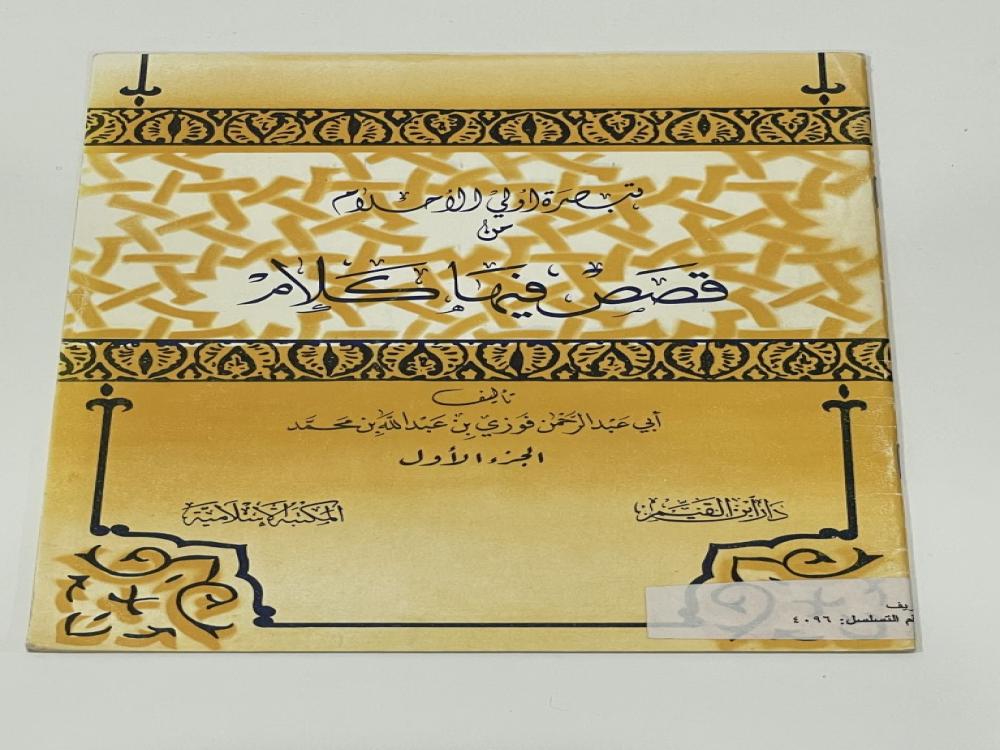 تبصرة أولي الأحلام
من
قصص فيها كلام
تأليف
أبي عبد الرحمن فوزي بن عبد الله بن محمد
الجزء الأول
دار ابن القيم
المكتبة الإسلامية
التسلسل: ٤٠٩٦